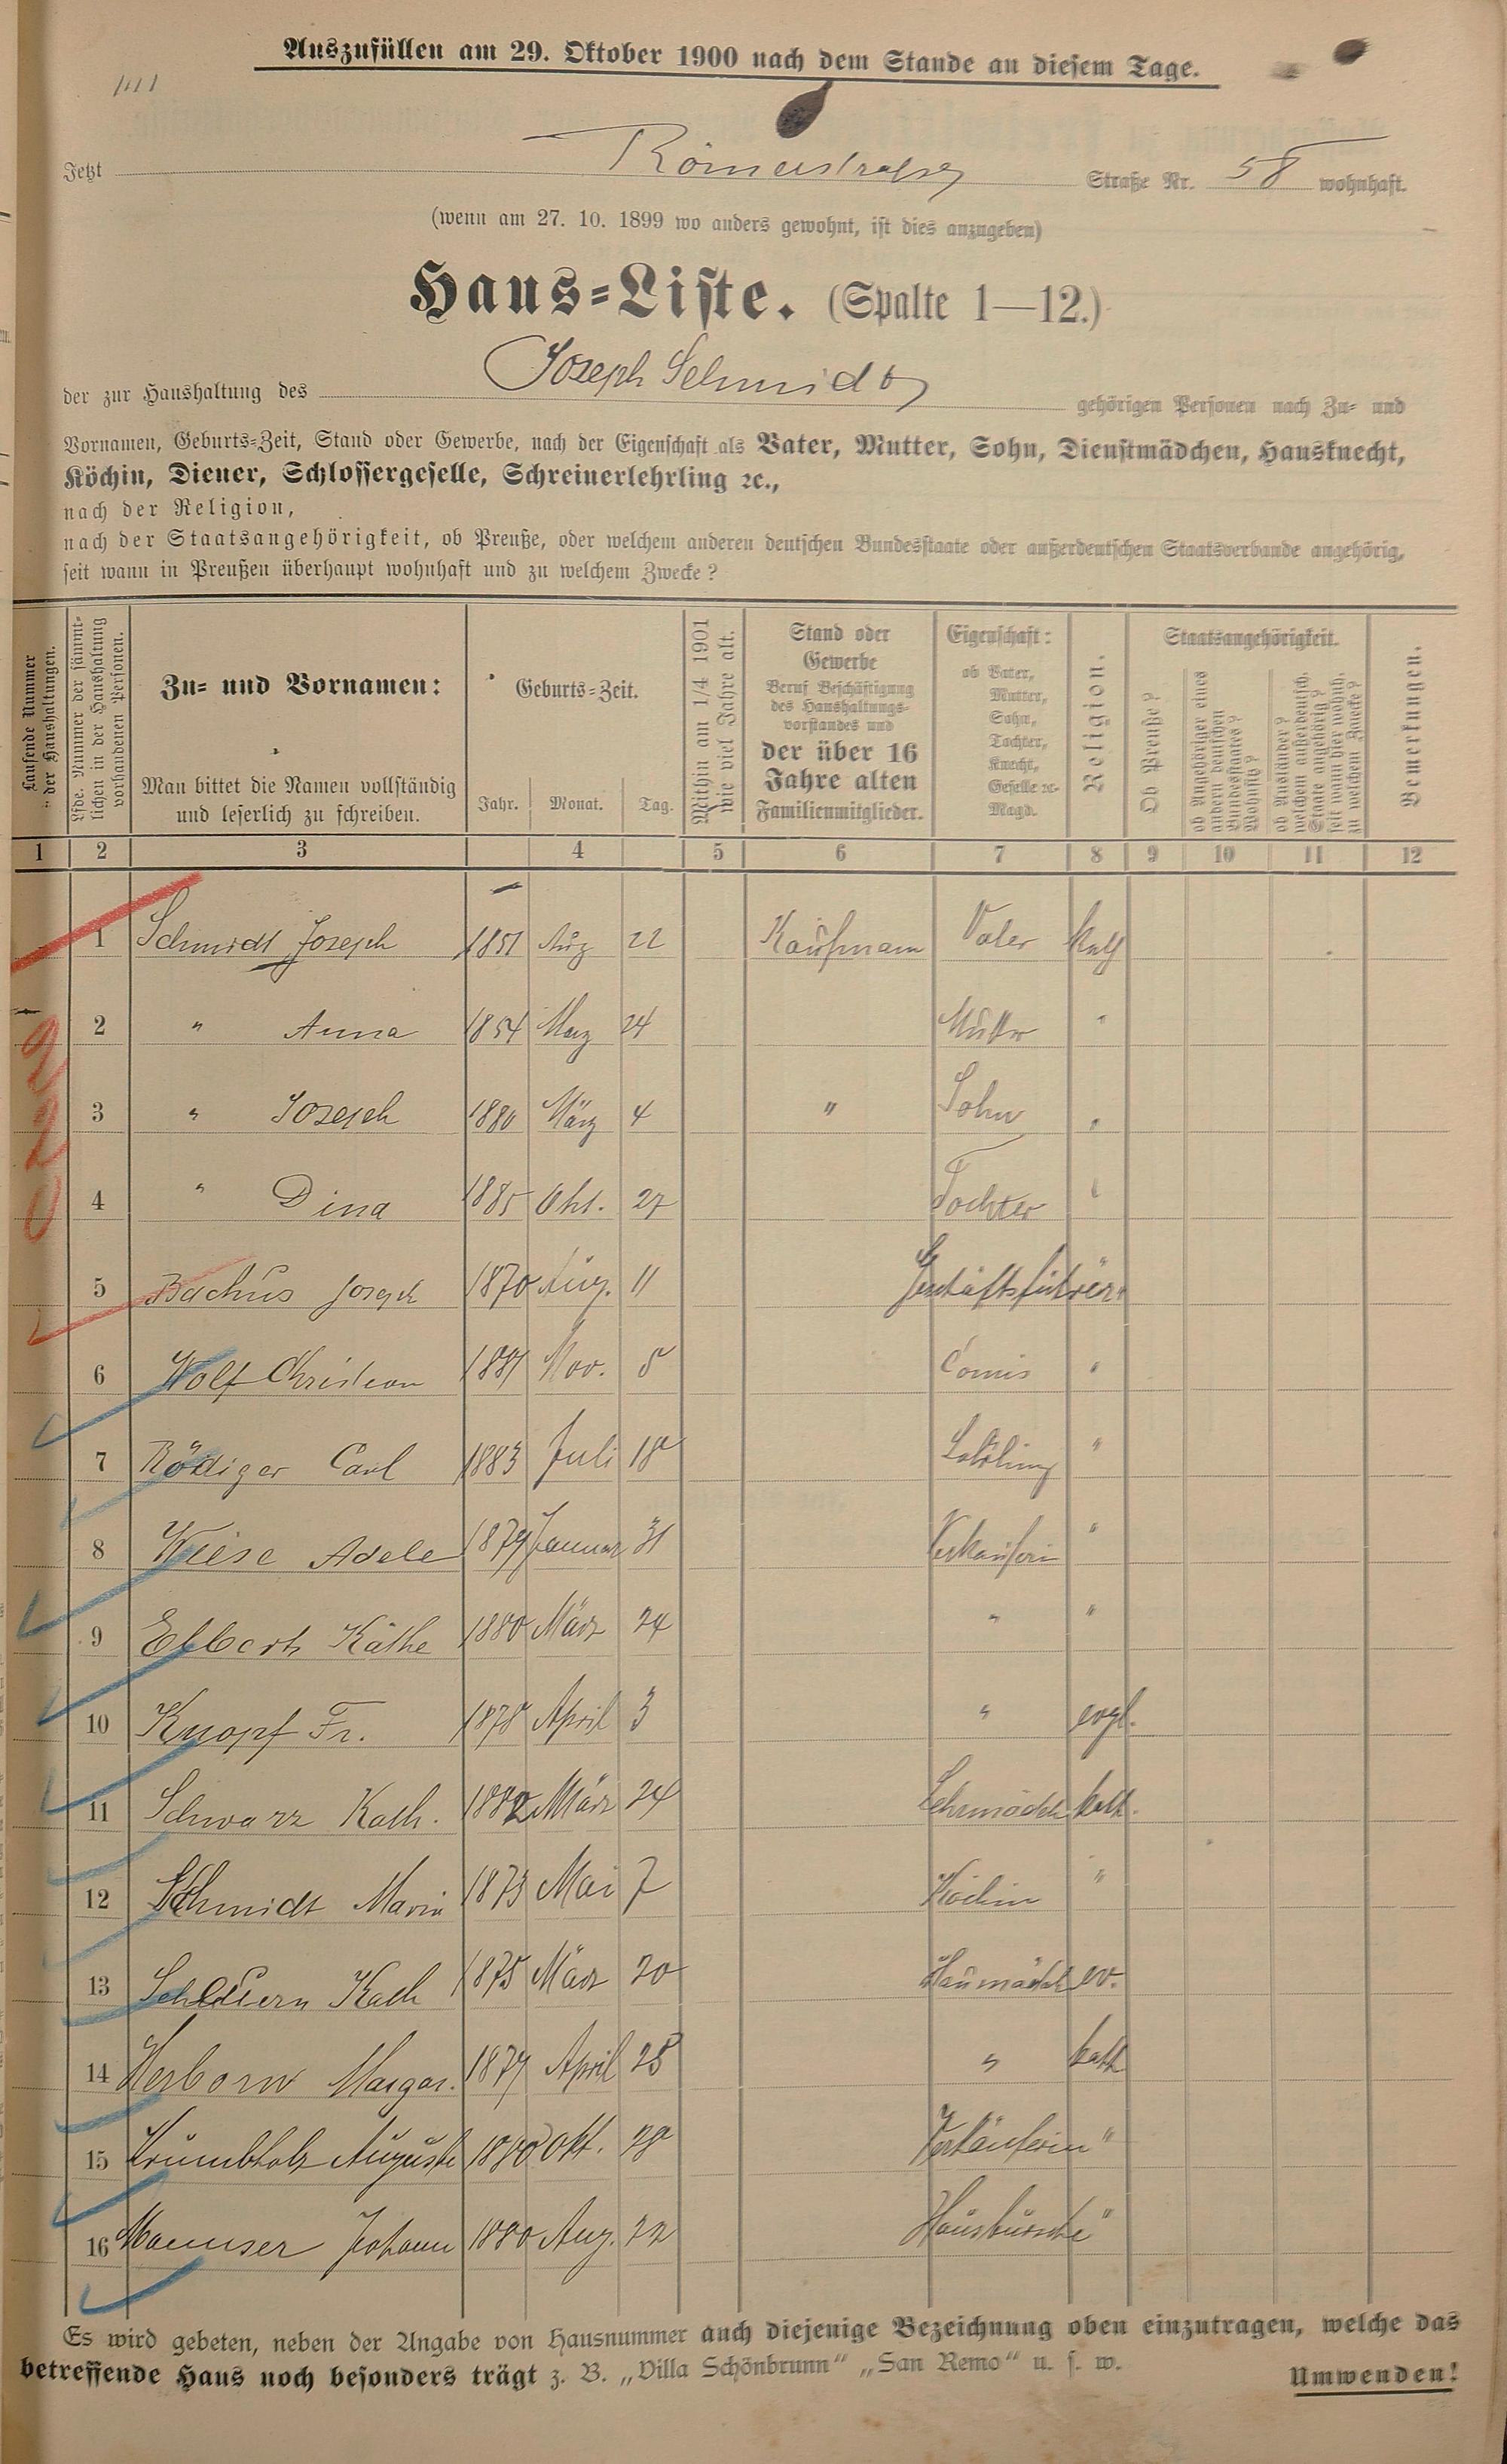 Auszufüllen am 29. Oktober 1900 nach dem Stande an diesem Tage.
Jetzt Römerstraße Straße Nr. 58 wohnhaft.
(wenn am 27. 10. 1899 wo anders gewohnt, ist dies anzugeben)
Haus-Liste. (Spalte 1—12.)
der zur Haushaltung des Joseph Schmidt gehörigen Personen nach Zu- und
Vornamen, Geburts-Zeit, Stand oder Gewerbe, nach der Eigenschaft als Vater, Mutter, Sohn, Dienstmädchen, Hausknecht,
Köchin, Diener, Schlossergeselle, Schreinerlehrling ꝛc.,
nach der Religion,
nach der Staatsangehörigkeit, ob Preuße, oder welchem anderen deutschen Bundesstaate oder außerdeutschen Staatsverbande angehörig,
seit wann in Preußen überhaupt wohnhaft und zu welchem Zwecke?
Laufende Nummer der Haushaltungen.
Lfde. Nummer der sämmtlichen in der Haushaltung vorhandenen Personen.
Zu- und Vornamen:
Man bittet die Namen vollständig
und leserlich zu schreiben.
Geburts-Zeit.
Jahr. Monat. Tag.
Mithin am 1/4 1901 wie viel Jahre alt.
Stand oder
Gewerbe
Beruf Beschäftigung
des Haushaltungs-
vorstandes und
der über 16
Jahre alten
Familienmitglieder.
Eigenschaft:
ob Vater,
Mutter,
Sohn,
Tochter,
Knecht,
Geselle ꝛc.
Magd.
Religion.
Staatsangehörigkeit.
Ob Preuße?
ob Angehöriger eines andern deutschen Bundesstaates? Wohnsitz?
ob Ausländer? welchem außerdeutsch. Staate angehörig? seit wann hier wohnh. zu welchem Zwecke?
Bemerkungen.
1 2 3 4 5 6 7 8 9 10 11 12
1 Schmidt Joseph 1851 Aug 22 Kaufmann Vater kath
2 " Anna 1854 März 24 Mutter "
3 " Joseph 1880 März 4 " Sohn "
4 " Dina 1885 Okt. 27 Tochter "
5 Bachus Joseph 1870 Aug. 11 Geschäftsführer "
6 Wolf Christian 1881 Nov. 5 Comis "
7 Rödiger Carl 1883 Juli 18 Lehrling "
8 Wiese Adele 1879 Januar 31 Verkäuferin "
9 Elbert Käthe 1880 März 24 " "
10 Knopf Fr. 1878 April 3 " evgl.
11 Schwarz Kath. 1882 März 24 Lehrmädch kath.
12 Schmidt Maria 1873 Mai 7 Köchin "
13 Kath 1875 März 20 Hausmädch ev.
14 Herborn Margar. 1879 April 28 " kath
15 Krumbholz Auguste 1880 Okt. 28 Verkäuferin "
16 Johann 1880 Aug. 22 Hausbursche "
Es wird gebeten, neben der Angabe von Hausnummer auch diejenige Bezeichnung oben einzutragen, welche das
betreffende Haus noch besonders trägt z. B. „Villa Schönbrunn" „San Remo" u. s. w.
Umwenden!